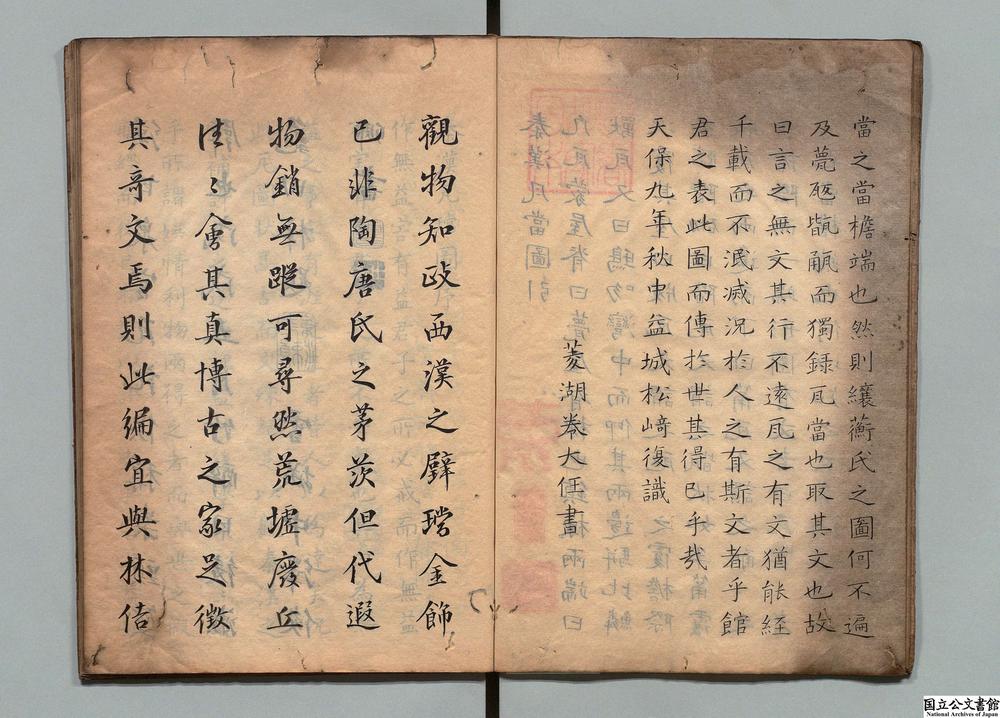 當之當檐端也然則纕蘅氏之圖何不遍
及甍瓯甋而獨録瓦當也取其文也故
曰言之無文其行不遠瓦之有文猶能経
千載而不泯滅況於人之有斯文者乎館
君之表此圖而傳於世其得已乎哉
天保九年秋中盆城松﨑復識
菱湖巻大任書
觀物知政西漢之璧璫金飾
已非陶唐氏之茅茨但代遐
物銷無蹤可尋然荒墟廢丘
徃〻會其真博古之家足徴
其奇文焉則此編宜與林佶
国立公文書館
National Archives of Japan